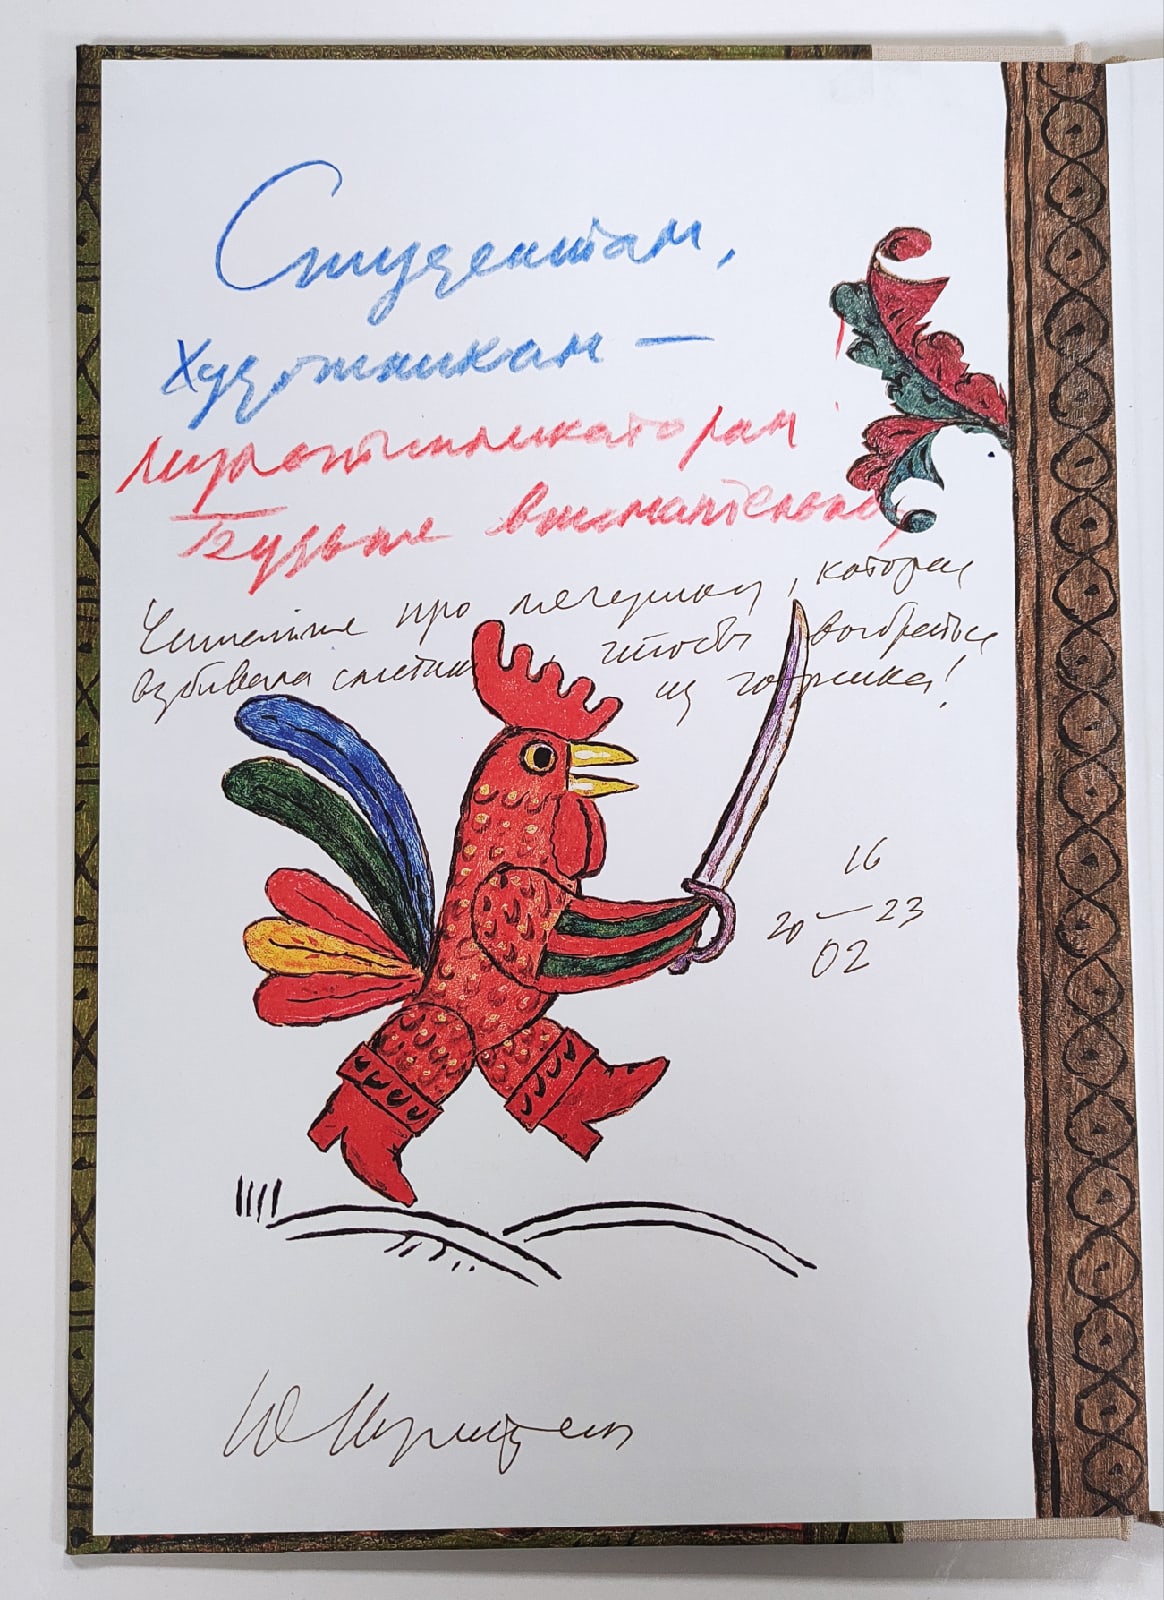 Студентам,
художникам —
мультипликаторам
Будьте внимательно
Читайте про лягушку, которая
взбивала сметану, чтобы выбраться
из горшка!
16
20 — 23
02
Ю Норштейн